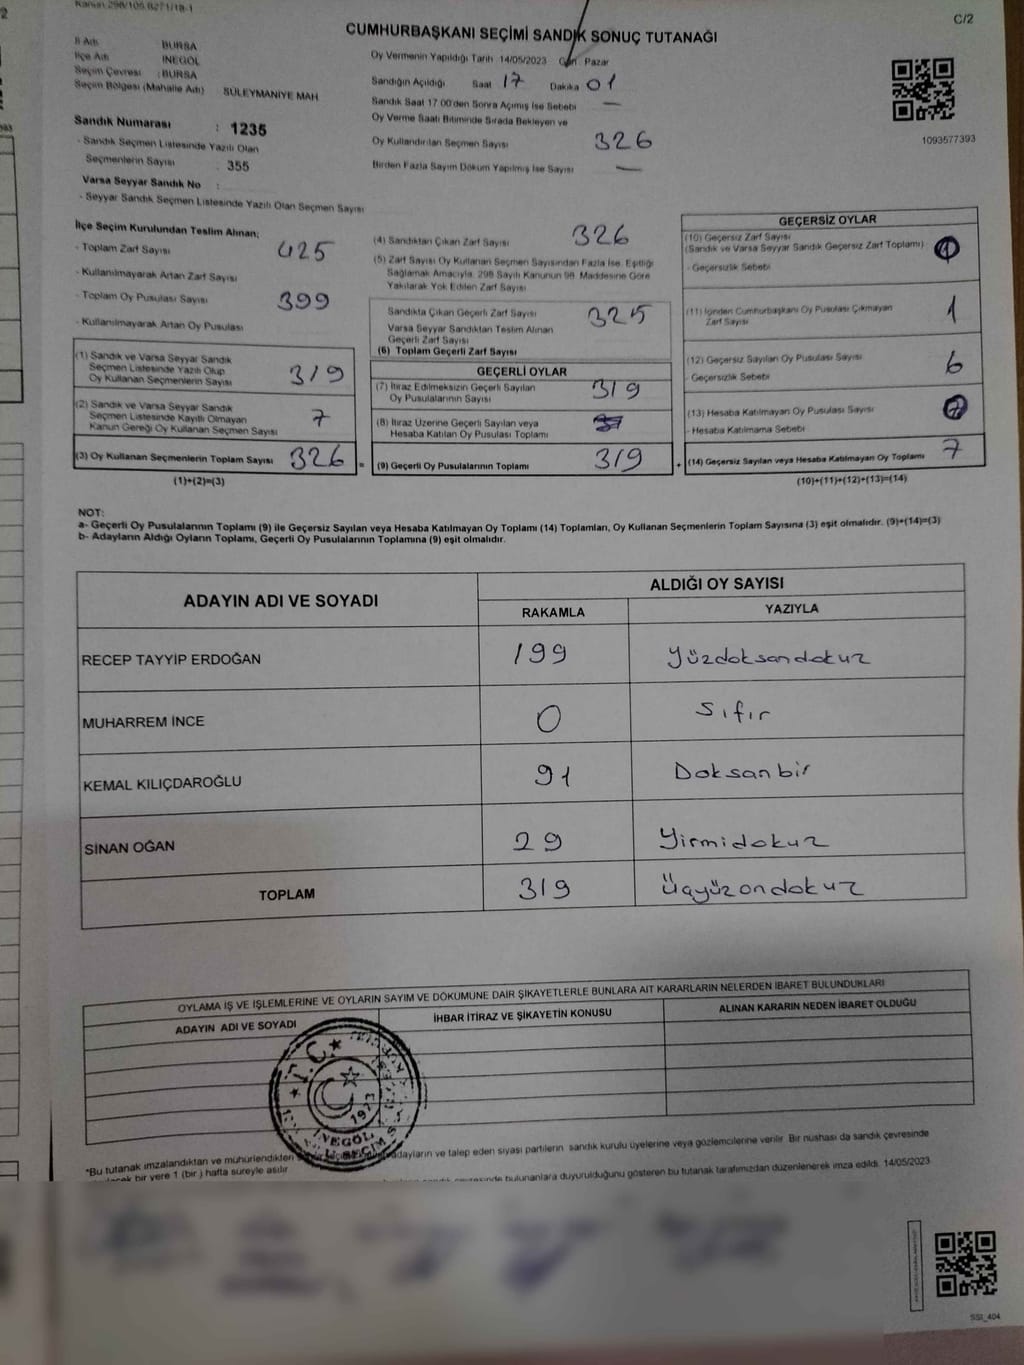 Kanun 298/105.B271/18-1
C/2
CUMHURBAŞKANI SEÇİMİ SANDIK SONUÇ TUTANAĞI
İl Adı BURSA
İlçe Adı İNEGÖL
Seçim Çevresi : BURSA
Seçim Bölgesi (Mahalle Adı) SÜLEYMANİYE MAH
Sandık Numarası : 1235
- Sandık Seçmen Listesinde Yazılı Olan
Seçmenlerin Sayısı : 355
Varsa Seyyar Sandık No :
- Seyyar Sandık Seçmen Listesinde Yazılı Olan Seçmen Sayısı
Oy Vermenin Yapıldığı Tarih 14/05/2023 Gün Pazar
Sandığın Açıldığı Saat 17 Dakika 01
Sandık Saat 17 00'den Sonra Açmış İse Sebebi —
Oy Verme Saati Bitiminde Sırada Bekleyen ve
Oy Kullandırılan Seçmen Sayısı 326
Birden Fazla Sayım Döküm Yapılmış İse Sayısı —
1093577393
İlçe Seçim Kurulundan Teslim Alınan;
- Toplam Zarf Sayısı 425
- Kullanılmayarak Artan Zarf Sayısı
- Toplam Oy Pusulası Sayısı 399
- Kullanılmayarak Artan Oy Pusulası
(1) Sandık ve Varsa Seyyar Sandık
Seçmen Listesinde Yazılı Olup
Oy Kullanan Seçmenlerin Sayısı 319
(2) Sandık ve Varsa Seyyar Sandık
Seçmen Listesinde Kayıtlı Olmayan
Kanun Gereği Oy Kullanan Seçmen Sayısı 7
(3) Oy Kullanan Seçmenlerin Toplam Sayısı 326 =
(1)+(2)=(3)
(4) Sandıktan Çıkan Zarf Sayısı 326
(5) Zarf Sayısı Oy Kullanan Seçmen Sayısından Fazla İse, Eşitliği
Sağlamak Amacıyla, 298 Sayılı Kanunun 98. Maddesine Göre
Yakılarak Yok Edilen Zarf Sayısı
Sandıkta Çıkan Geçerli Zarf Sayısı 325
Varsa Seyyar Sandıktan Teslim Alınan
Geçerli Zarf Sayısı
(6) Toplam Geçerli Zarf Sayısı
GEÇERLİ OYLAR
(7) İtiraz Edilmeksizin Geçerli Sayılan
Oy Pusulalarının Sayısı 319
(8) İtiraz Üzerine Geçerli Sayılan veya
Hesaba Katılan Oy Pusulası Toplamı
(9) Geçerli Oy Pusulalarının Toplamı 319 +
GEÇERSİZ OYLAR
(10) Geçersiz Zarf Sayısı
(Sandık ve Varsa Seyyar Sandık Geçersiz Zarf Toplamı)
- Geçersizlik Sebebi
(11) İçinden Cumhurbaşkanı Oy Pusulası Çıkmayan
Zarf Sayısı 1
(12) Geçersiz Sayılan Oy Pusulası Sayısı 6
- Geçersizlik Sebebi
(13) Hesaba Katılmayan Oy Pusulası Sayısı
- Hesaba Katılmama Sebebi
(14) Geçersiz Sayılan veya Hesaba Katılmayan Oy Toplamı 7
(10)+(11)+(12)+(13)=(14)
NOT:
a- Geçerli Oy Pusulalarının Toplamı (9) ile Geçersiz Sayılan veya Hesaba Katılmayan Oy Toplamı (14) Toplamları, Oy Kullanan Seçmenlerin Toplam Sayısına (3) eşit olmalıdır. (9)+(14)=(3)
b- Adayların Aldığı Oyların Toplamı, Geçerli Oy Pusulalarının Toplamına (9) eşit olmalıdır.
ADAYIN ADI VE SOYADI ALDIĞI OY SAYISI
RAKAMLA YAZIYLA
RECEP TAYYİP ERDOĞAN 199 Yüzdoksandokuz
MUHARREM İNCE 0 Sıfır
KEMAL KILIÇDAROĞLU 91 Doksanbir
SİNAN OĞAN 29 Yirmidokuz
TOPLAM 319 Üçyüzondokuz
OYLAMA İŞ VE İŞLEMLERİNE VE OYLARIN SAYIM VE DÖKÜMÜNE DAİR ŞİKAYETLERLE BUNLARA AİT KARARLARIN NELERDEN İBARET BULUNDUKLARI
ADAYIN ADI VE SOYADI İHBAR İTİRAZ VE ŞİKAYETİN KONUSU ALINAN KARARIN NEDEN İBARET OLDUĞU
T.C.
1923
İNEGÖL
*Bu tutanak imzalandıktan ve mühürlendikten adayların ve talep eden siyasi partilerin sandık kurulu üyelerine veya gözlemcilerine verilir. Bir nüshası da sandık çevresinde
bir yere 1 (bir) hafta süreyle asılır.
bulunanlara duyurulduğunu gösteren bu tutanak tarafımızdan düzenlenerek imza edildi. 14/05/2023
SSI_404